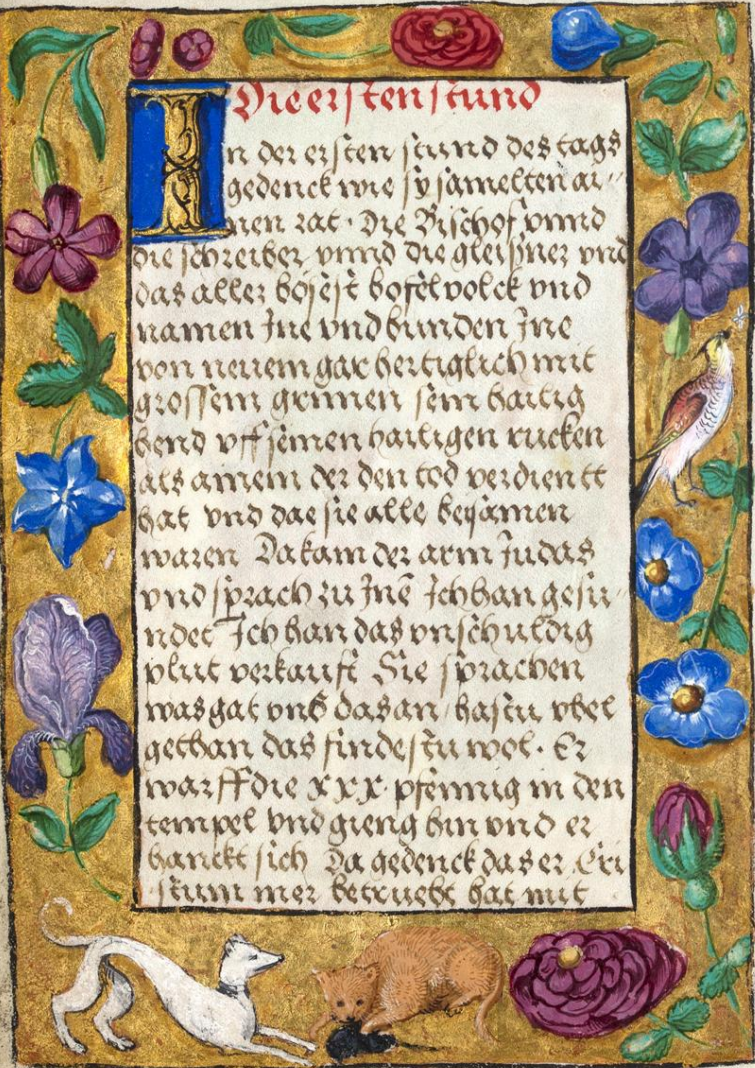 Die ersten stund
In der ersten stund des tags
gedenck wie sy samelten ai-
nen rat · Die Bischof vnnd
die schreiber vnnd die gleisner vnd
das aller bösest bofelvolck vnd
namen Ine vnd bunden Ine
von neuem gar hertiglich mit
grossem grimen sein hailig
hend vff seinen hailigen rucken
als ainem der den tod verdientt
hat vnd dae sie alle beysamen
waren Da kam der arm Judas
vnd sprach zu Inē Ich han gesu-
ndet Ich han das vnschuldig
plut verkauft Sie sprachen
was gat vns das an hastu vbel
gethan das findestu wol · Er
warff die xxx pfennig in den
tempel vnd gieng hin vnd er
hanckt sich Da gedenck das er Cri
stum mer betruebt hat mit